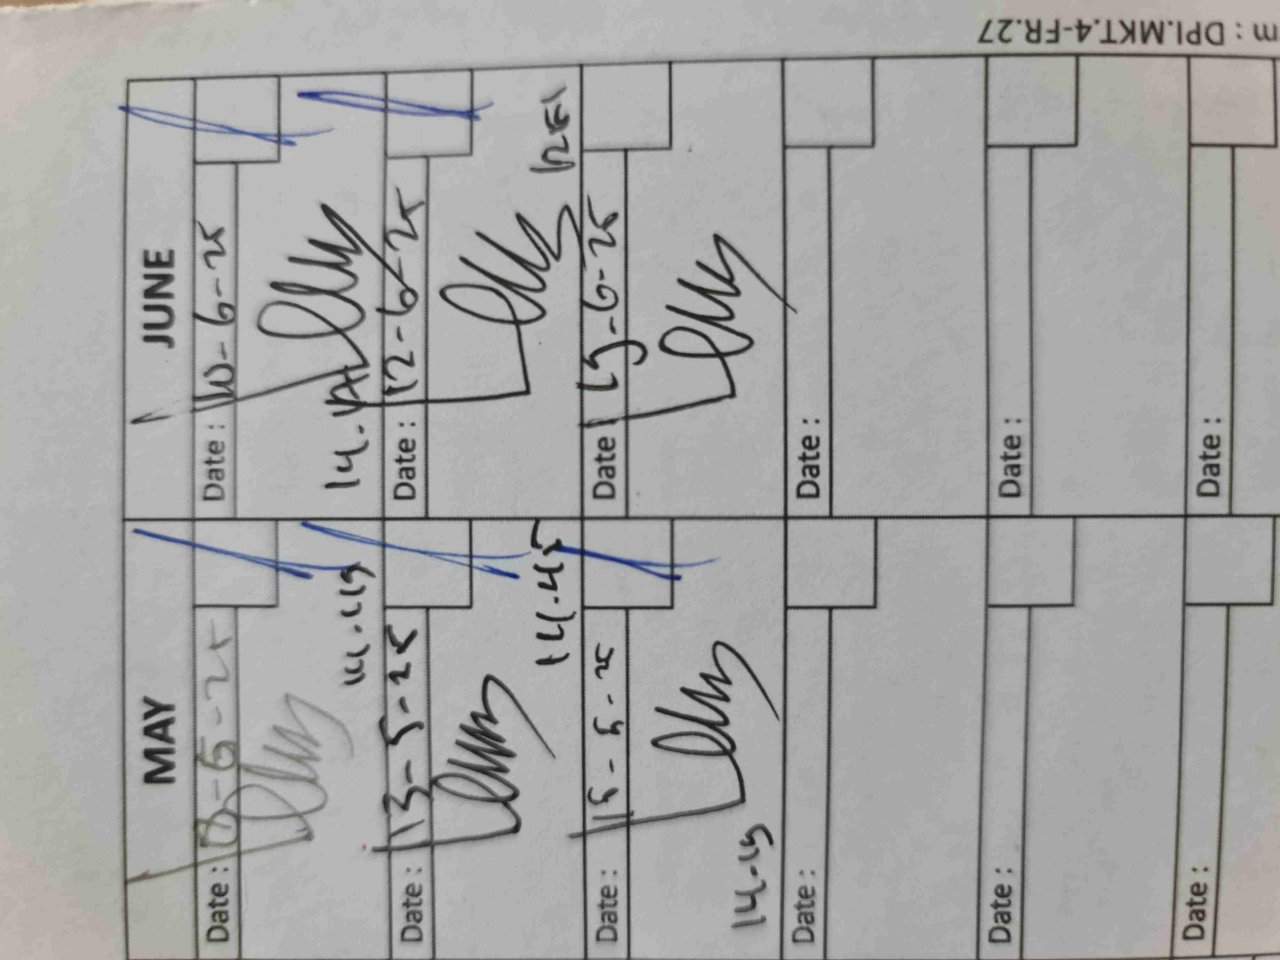 m : DPI.MKT.4-FR.27
MAY
JUNE
Date :
Date : 10-6-25
14.45
Date : 13-5-25
Date : 12-6-25
14.45
Date : 15-5-25
Date : 19-6-25
14-15
Date :
Date :
Date :
Date :
Date :
Date :